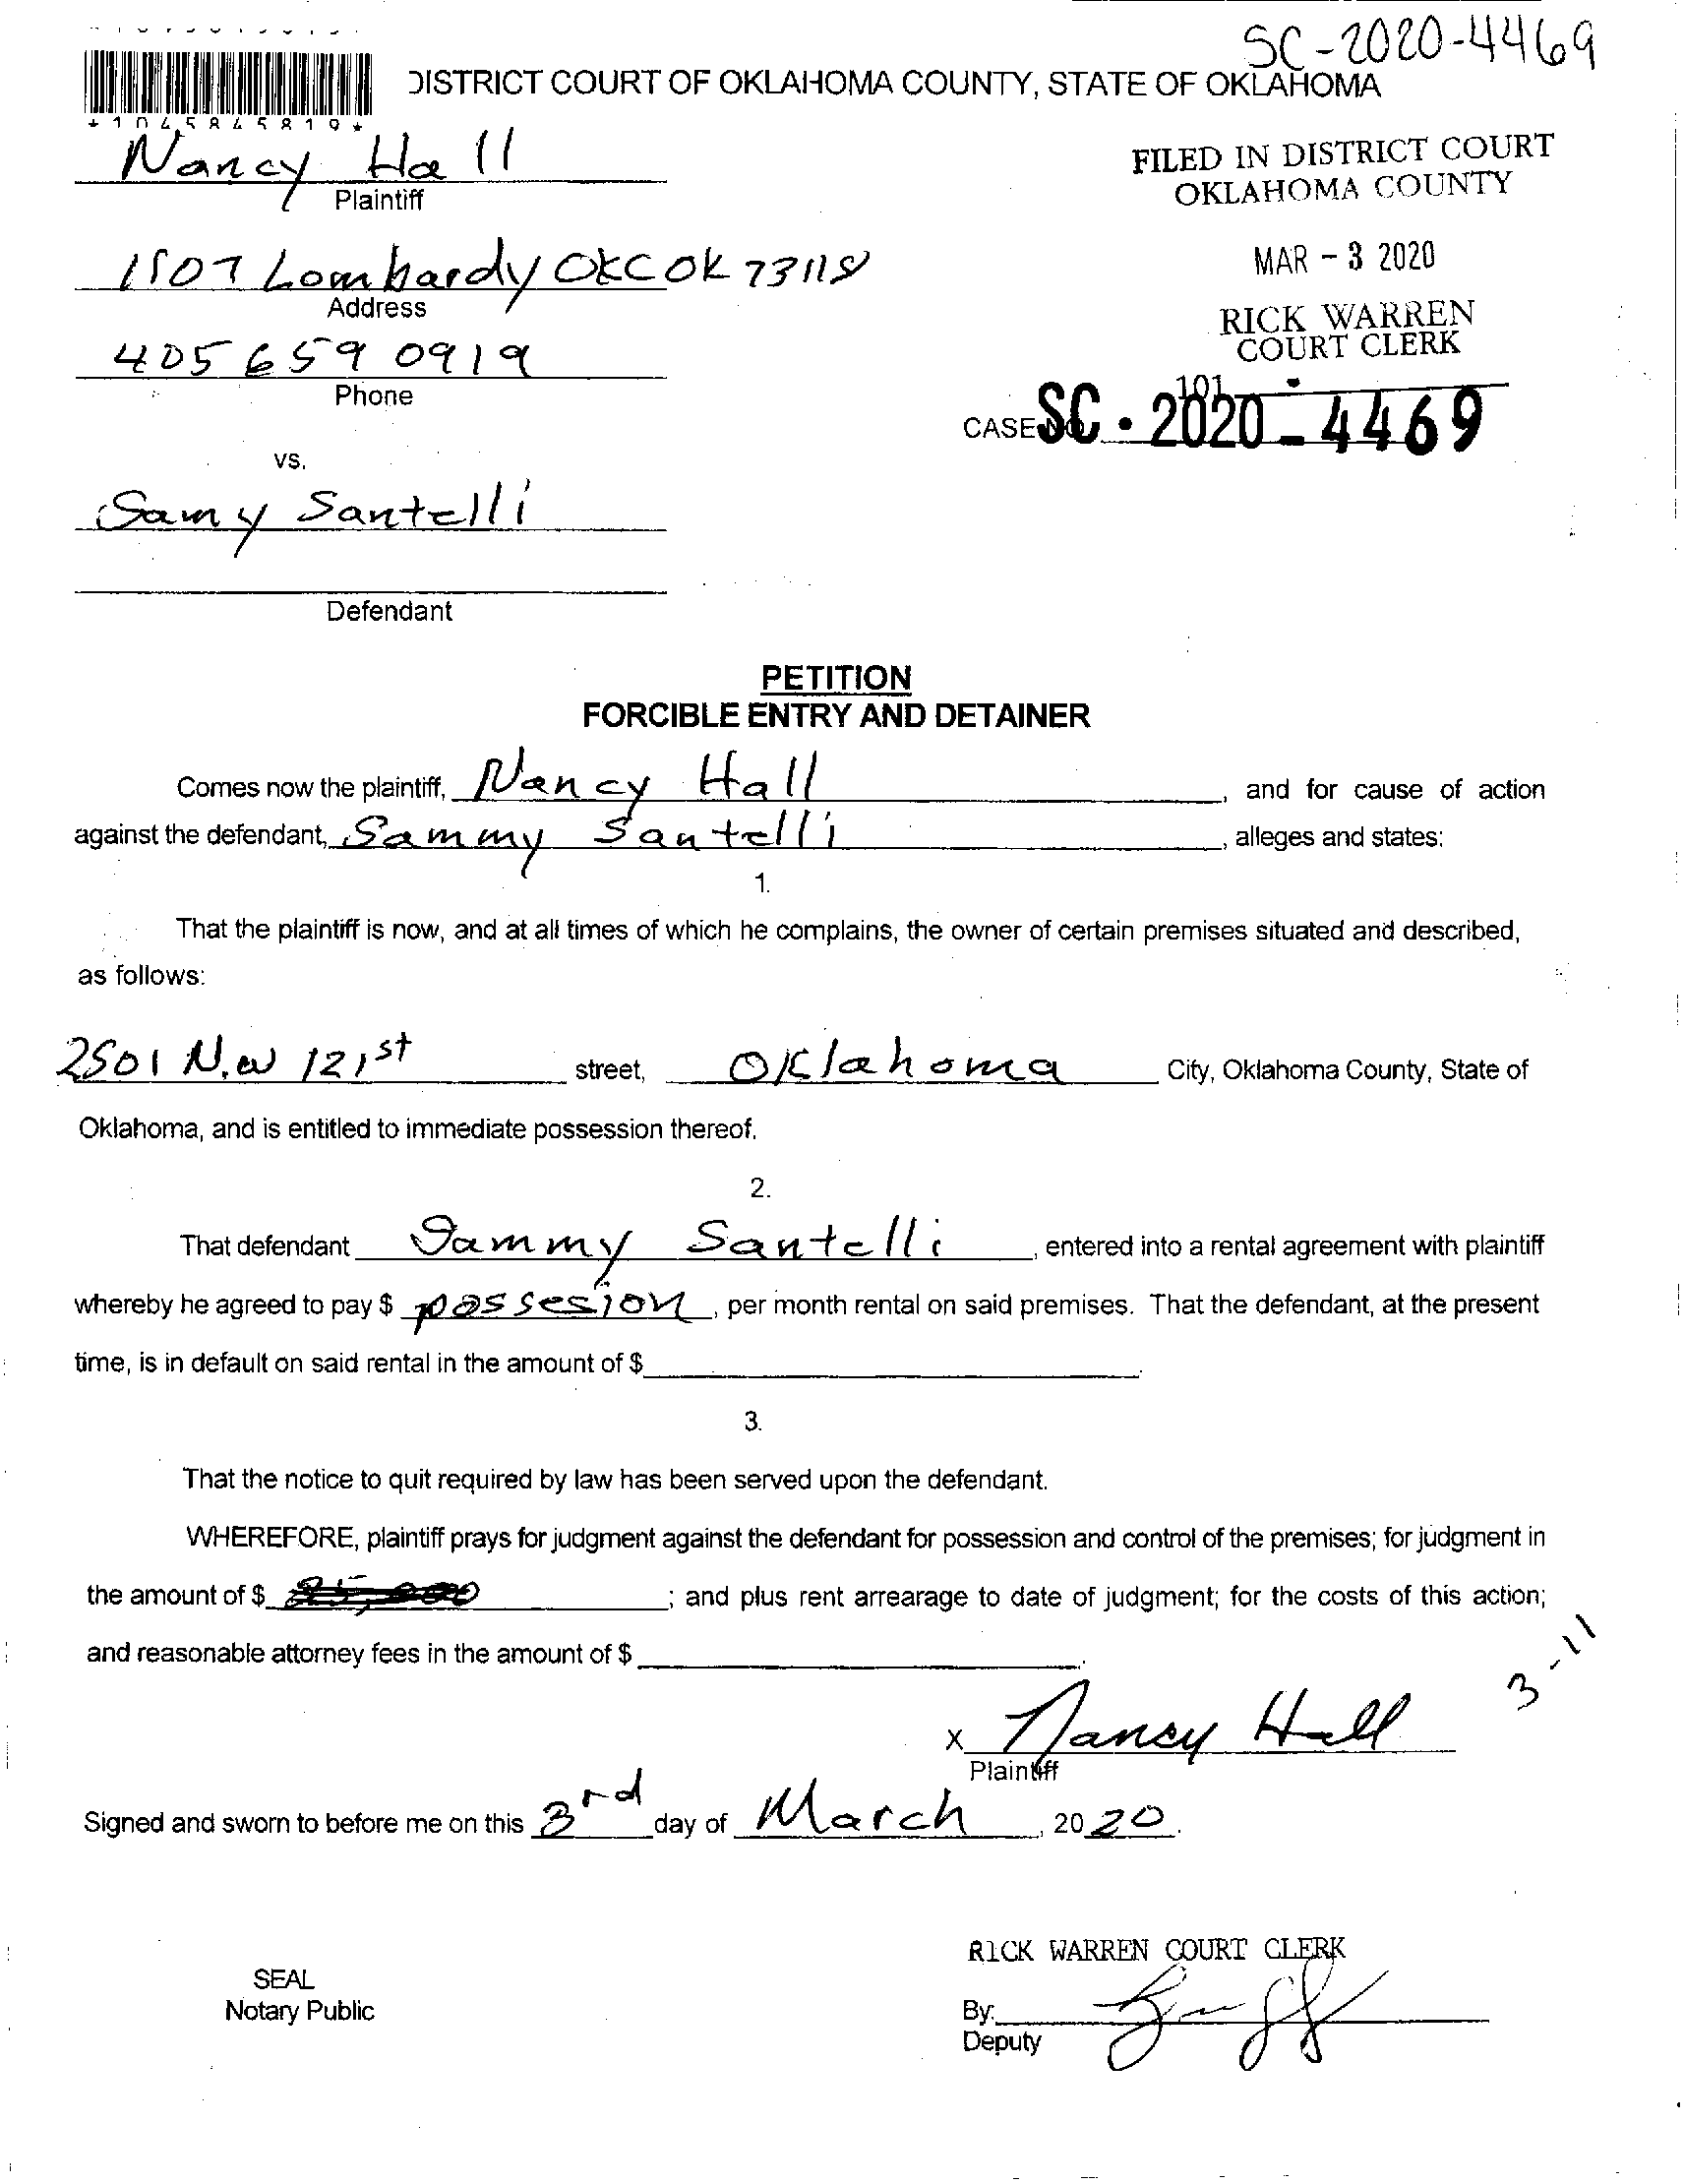 SC-2020-4469
DISTRICT COURT OF OKLAHOMA COUNTY, STATE OF OKLAHOMA
*1045845819*
Nancy Hall
Plaintiff
FILED IN DISTRICT COURT
OKLAHOMA COUNTY
MAR - 3 2020
RICK WARREN
COURT CLERK
101
1507 Lombardy OKC OK 73118
Address
405 659 0919
Phone
CASE NO. SC - 2020 - 4469
vs.
Samy Santelli
Defendant
PETITION
FORCIBLE ENTRY AND DETAINER
Comes now the plaintiff, Nancy Hall, and for cause of action
against the defendant, Sammy Santelli, alleges and states:
1.
That the plaintiff is now, and at all times of which he complains, the owner of certain premises situated and described,
as follows:
2501 N.W 121st street, Oklahoma City, Oklahoma County, State of
Oklahoma, and is entitled to immediate possession thereof.
2.
That defendant Sammy Santelli, entered into a rental agreement with plaintiff
whereby he agreed to pay $ possesion, per month rental on said premises. That the defendant, at the present
time, is in default on said rental in the amount of $.
3.
That the notice to quit required by law has been served upon the defendant.
WHEREFORE, plaintiff prays for judgment against the defendant for possession and control of the premises; for judgment in
the amount of $ ; and plus rent arrearage to date of judgment; for the costs of this action;
and reasonable attorney fees in the amount of $.
3-11
X Nancy Hall
Plaintiff
Signed and sworn to before me on this 3rd day of March, 2020.
RICK WARREN COURT CLERK
SEAL
Notary Public
By:
Deputy